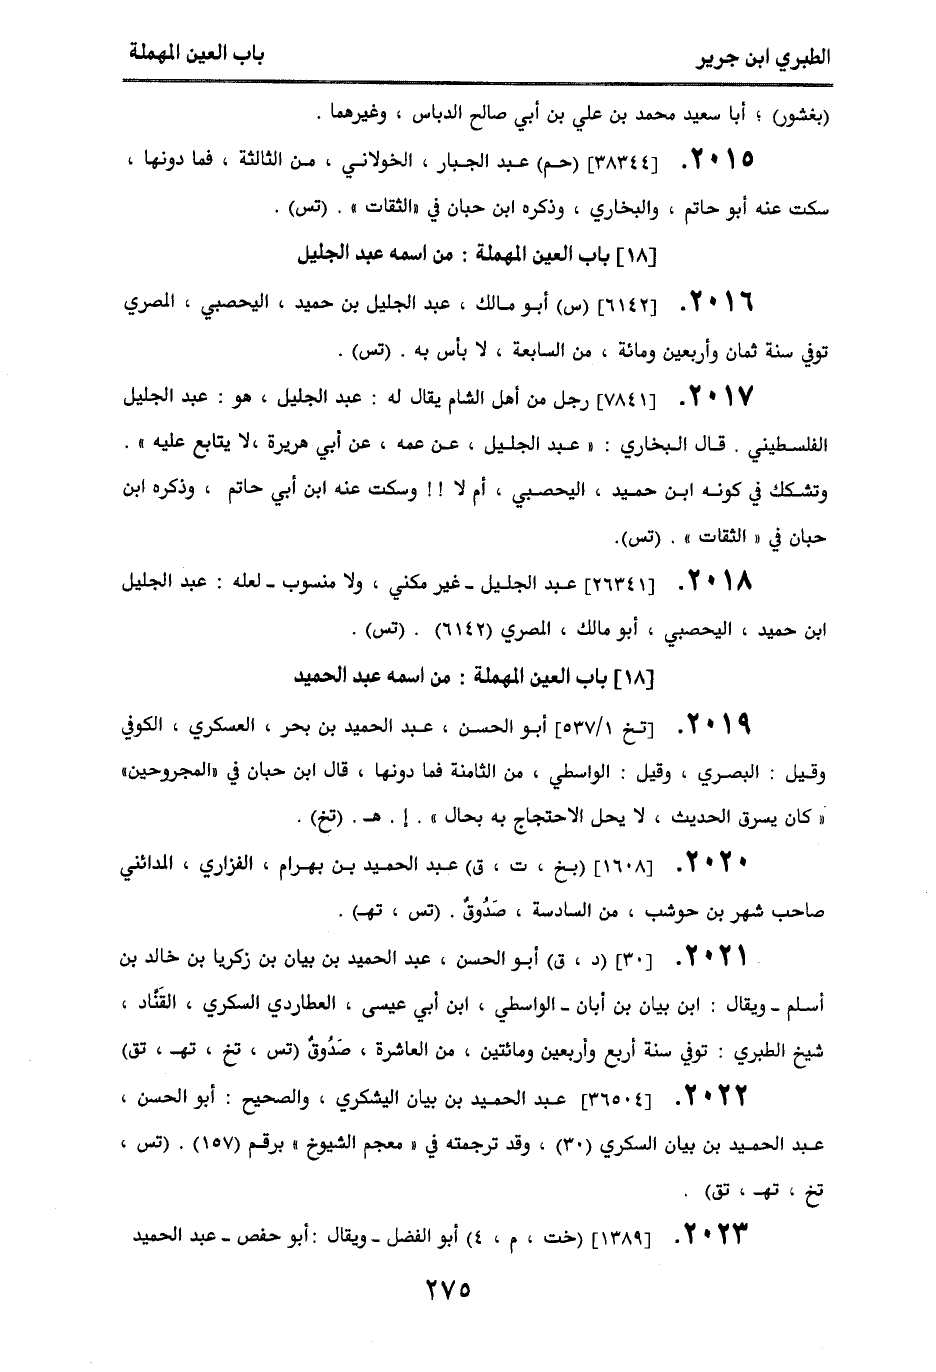 الطبري ابن جرير باب العين المهملة
(بغشور) ؛ أبا سعيد محمد بن علي بن أبي صالح الدباس ، وغيرهما .
٢٠١٥. [٣٨٣٤٤] (حم) عبد الجبار ، الخولاني ، من الثالثة ، فما دونها ،
سكت عنه أبو حاتم ، والبخاري ، وذكره ابن حبان في «الثقات» . (تس) .
[١٨] باب العين المهملة : من اسمه عبد الجليل
٢٠١٦. [٦١٤٢] (س) أبو مالك ، عبد الجليل بن حميد ، اليحصبي ، المصري
توفي سنة ثمان وأربعين ومائة ، من السابعة ، لا بأس به . (تس) .
٢٠١٧. [٧٨٤١] رجل من أهل الشام يقال له : عبد الجليل ، هو : عبد الجليل
الفلسطيني . قال البخاري : « عبد الجليل ، عن عمه ، عن أبي هريرة ،لا يتابع عليه » .
وتشكك في كونه ابن حميد ، اليحصبي ، أم لا !! وسكت عنه ابن أبي حاتم ، وذكره ابن
حبان في « الثقات » . (تس).
٢٠١٨. [٢٦٣٤١] عبد الجليل ـ غير مكني ، ولا منسوب ـ لعله : عبد الجليل
ابن حميد ، اليحصبي ، أبو مالك ، المصري (٦١٤٢) . (تس) .
[١٨] باب العين المهملة : من اسمه عبد الحميد
٢٠١٩. [تخ ٥٣٧/١] أبو الحسن ، عبد الحميد بن بحر ، العسكري ، الكوفي
وقيل : البصري ، وقيل : الواسطي ، من الثامنة فما دونها ، قال ابن حبان في «المجروحين»
« كان يسرق الحديث ، لا يحل الاحتجاج به بحال » . إ . هـ . (تخ) .
٢٠٢٠. [١٦٠٨] (بخ ، ت ، ق) عبد الحميد بن بهرام ، الفزاري ، المدائني
صاحب شهر بن حوشب ، من السادسة ، صَدُوقٌ . (تس ، تهـ) .
٢٠٢١. [٣٠] (د ، ق) أبو الحسن ، عبد الحميد بن بيان بن زكريا بن خالد بن
أسلم ـ ويقال : ابن بيان بن أبان ـ الواسطي ، ابن أبي عيسى ، العطاردي السكري ، القَنَّاد ،
شيخ الطبري : توفي سنة أربع وأربعين ومائتين ، من العاشرة ، صَدُوقٌ (تس ، تخ ، تهـ ، تق)
٢٠٢٢. [٣٦٥٠٤] عبد الحميد بن بيان اليشكري ، والصحيح : أبو الحسن ،
عبد الحميد بن بيان السكري (٣٠) ، وقد ترجمته في « معجم الشيوخ » برقم (١٥٧) . (تس ،
تخ ، تهـ ، تق) .
٢٠٢٣. [١٣٨٩] (خت ، م ، ٤) أبو الفضل ـ ويقال :أبو حفص ـ عبد الحميد
٢٧٥